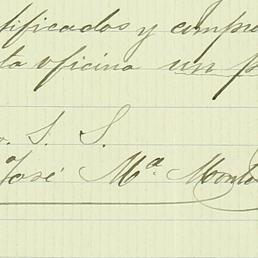 tificados y compro
la oficina un p
o. S. S.
José Mª. Monto